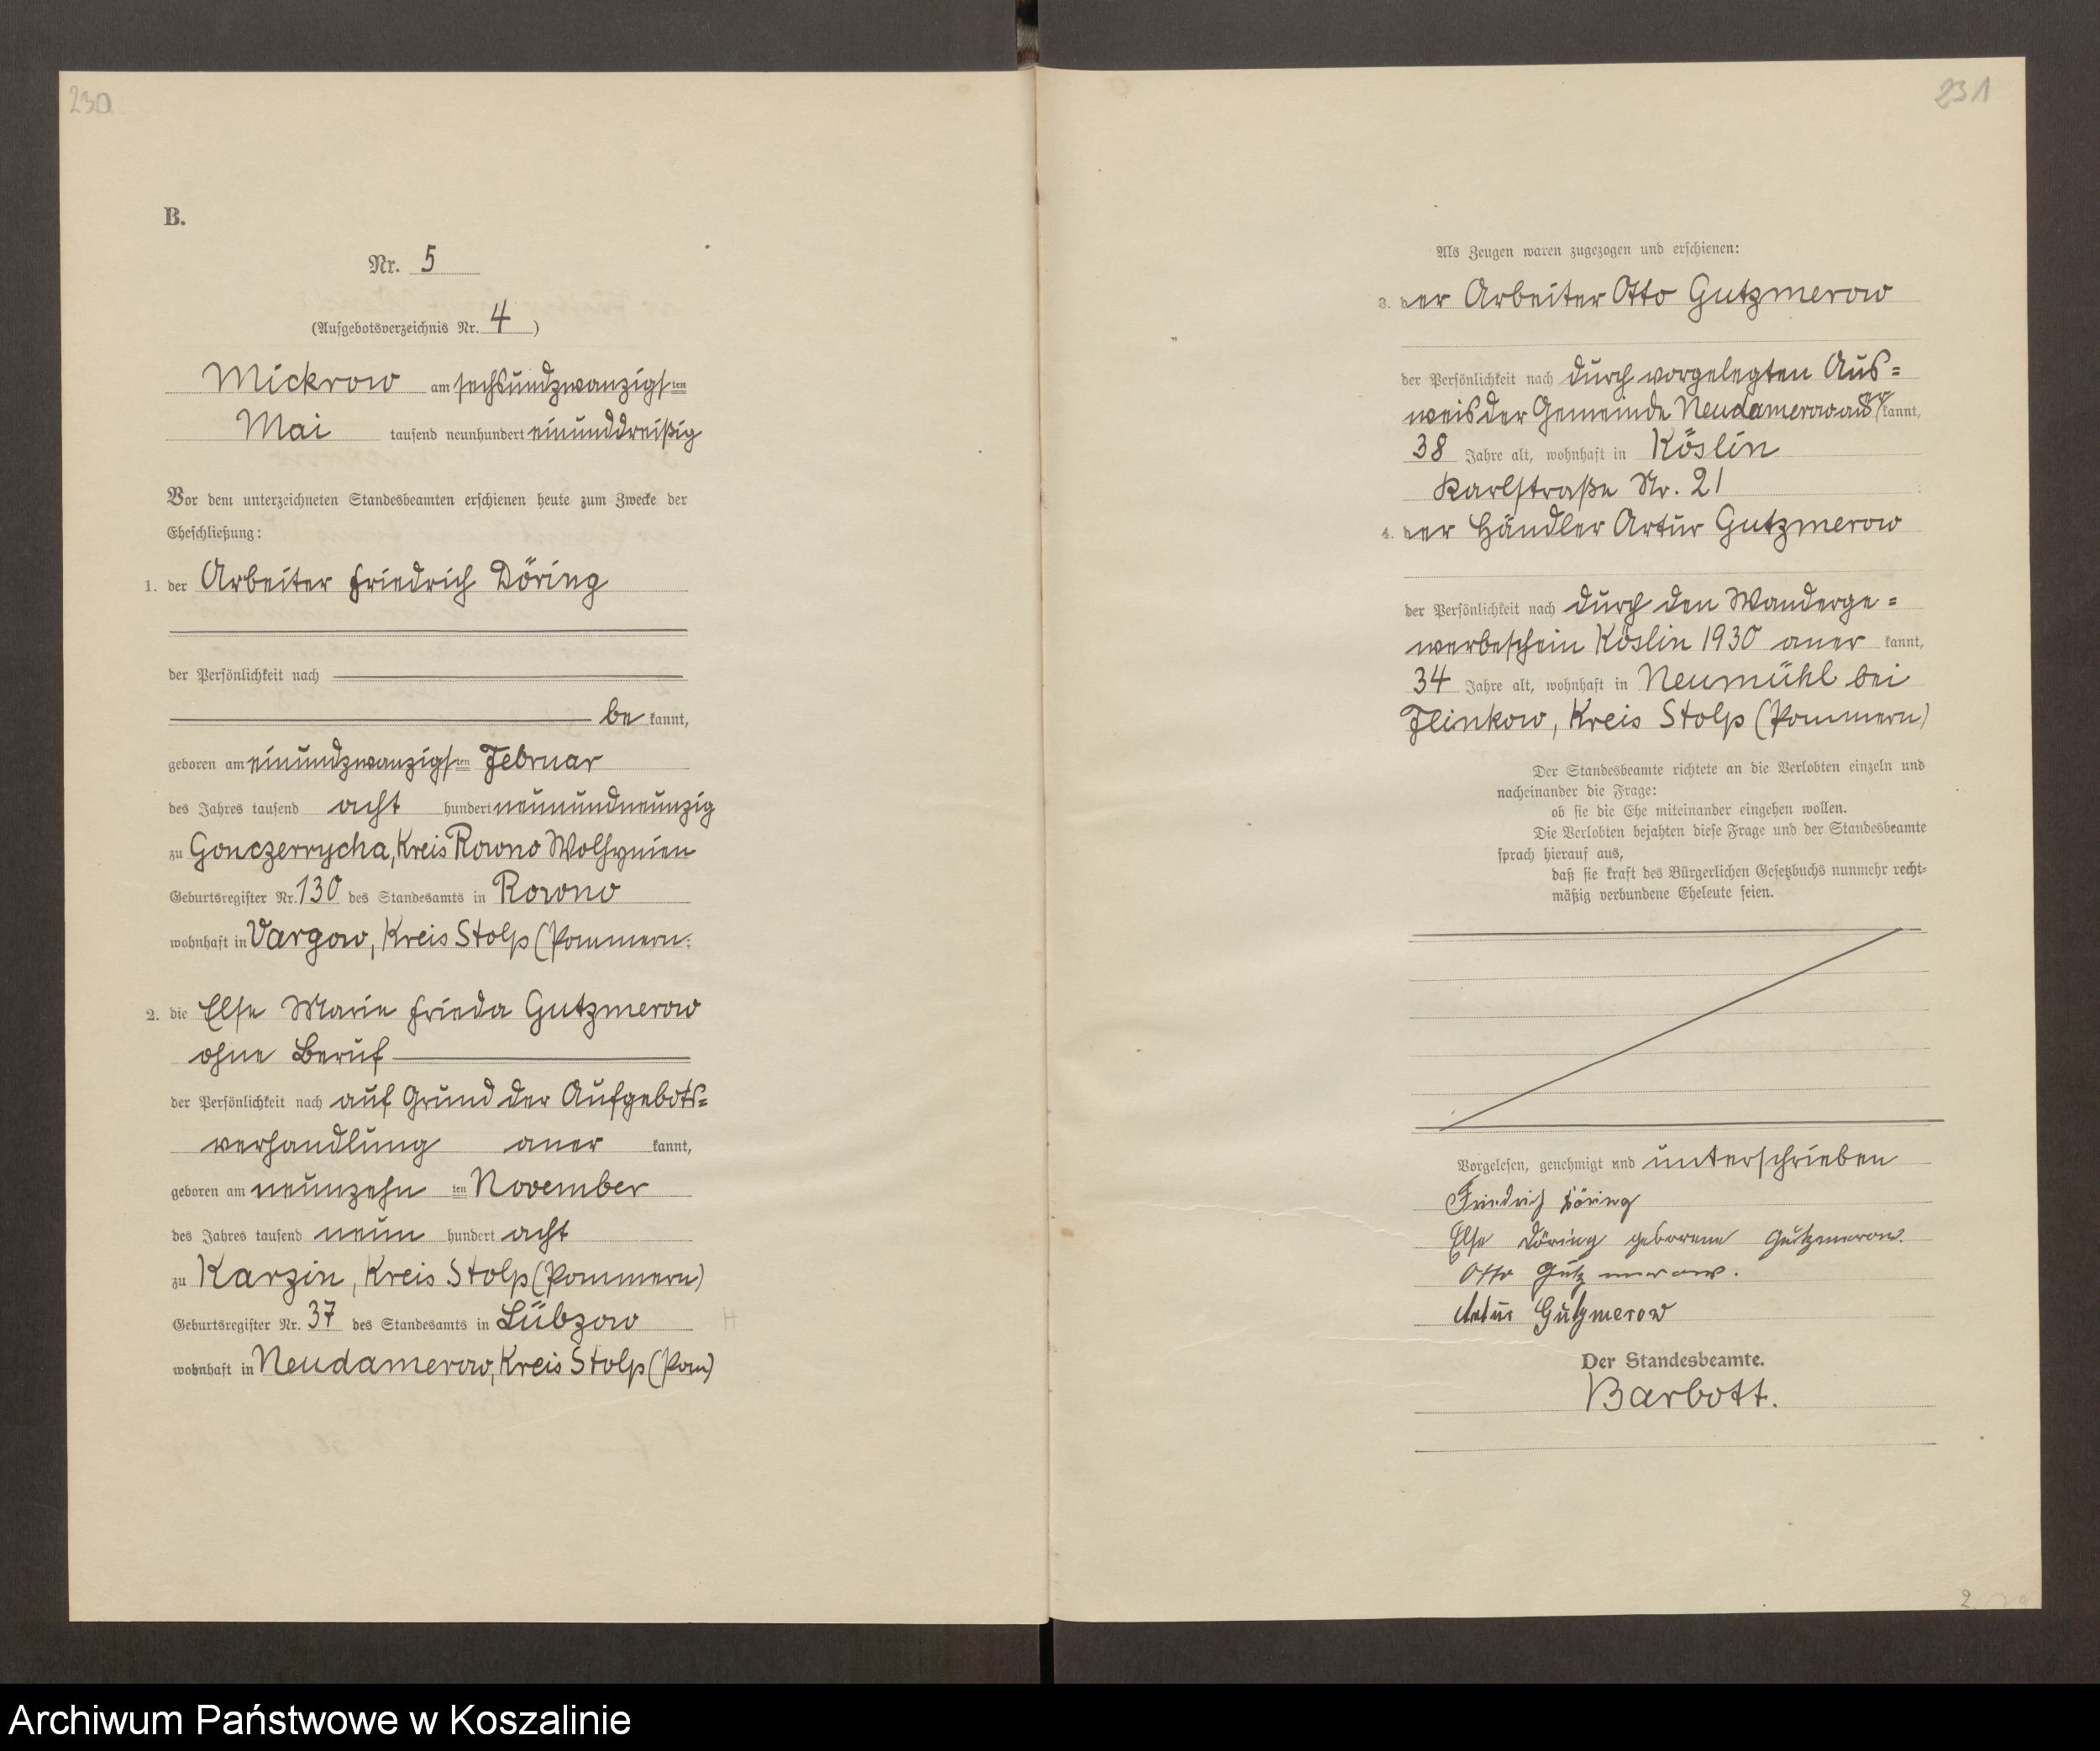 230
B.
Nr. 5
(Aufgebotsverzeichnis Nr. 4)
Mickrow am sechsundzwanzigsten
Mai tausend neunhundert einunddreißig
Vor dem unterzeichneten Standesbeamten erschienen heute zum Zwecke der
Eheschließung:
1. der Arbeiter Friedrich Döring
der Persönlichkeit nach
be kannt,
geboren am einundzwanzigsten Februar
des Jahres tausend acht hundert neunundneunzig
zu Gonczerrycha, Kreis Rowno Wolhynien
Geburtsregister Nr. 130 des Standesamts in Rowno
wohnhaft in Vargow, Kreis Stolp (Pommern
2. die Else Marie Frieda Gutzmerow
ohne Beruf
der Persönlichkeit nach auf Grund der Aufgebots=
verhandlung aner kannt,
geboren am neunzehn ten November
des Jahres tausend neun hundert acht
zu Karzin, Kreis Stolp (Pommern)
Geburtsregister Nr. 37 des Standesamts in Lübzow
wohnhaft in Neudamerow, Kreis Stolp (Pom)
231
Als Zeugen waren zugezogen und erschienen:
3. der Arbeiter Otto Gutzmerow
der Persönlichkeit nach durch vorgelegten Aus=
weis der Gemeinde Neudamerow aner kannt,
38 Jahre alt, wohnhaft in Köslin
Karlstraße Nr. 21
4. der Händler Artur Gutzmerow
der Persönlichkeit nach durch den Wanderge=
werbeschein Köslin 1930 aner kannt,
34 Jahre alt, wohnhaft in Neumühl bei
Flinkow, Kreis Stolp (Pommern)
Der Standesbeamte richtete an die Verlobten einzeln und
nacheinander die Frage:
ob sie die Ehe miteinander eingehen wollen.
Die Verlobten bejahten diese Frage und der Standesbeamte
sprach hierauf aus,
daß sie kraft des Bürgerlichen Gesetzbuchs nunmehr recht=
mäßig verbundene Eheleute seien.
Vorgelesen, genehmigt und unterschrieben
Friedrich Döring
Else Döring geborene Gutzmerow.
Otto Gutzmerow.
Artur Gutzmerow
Der Standesbeamte.
Barbott.
2
Archiwum Państwowe w Koszalinie